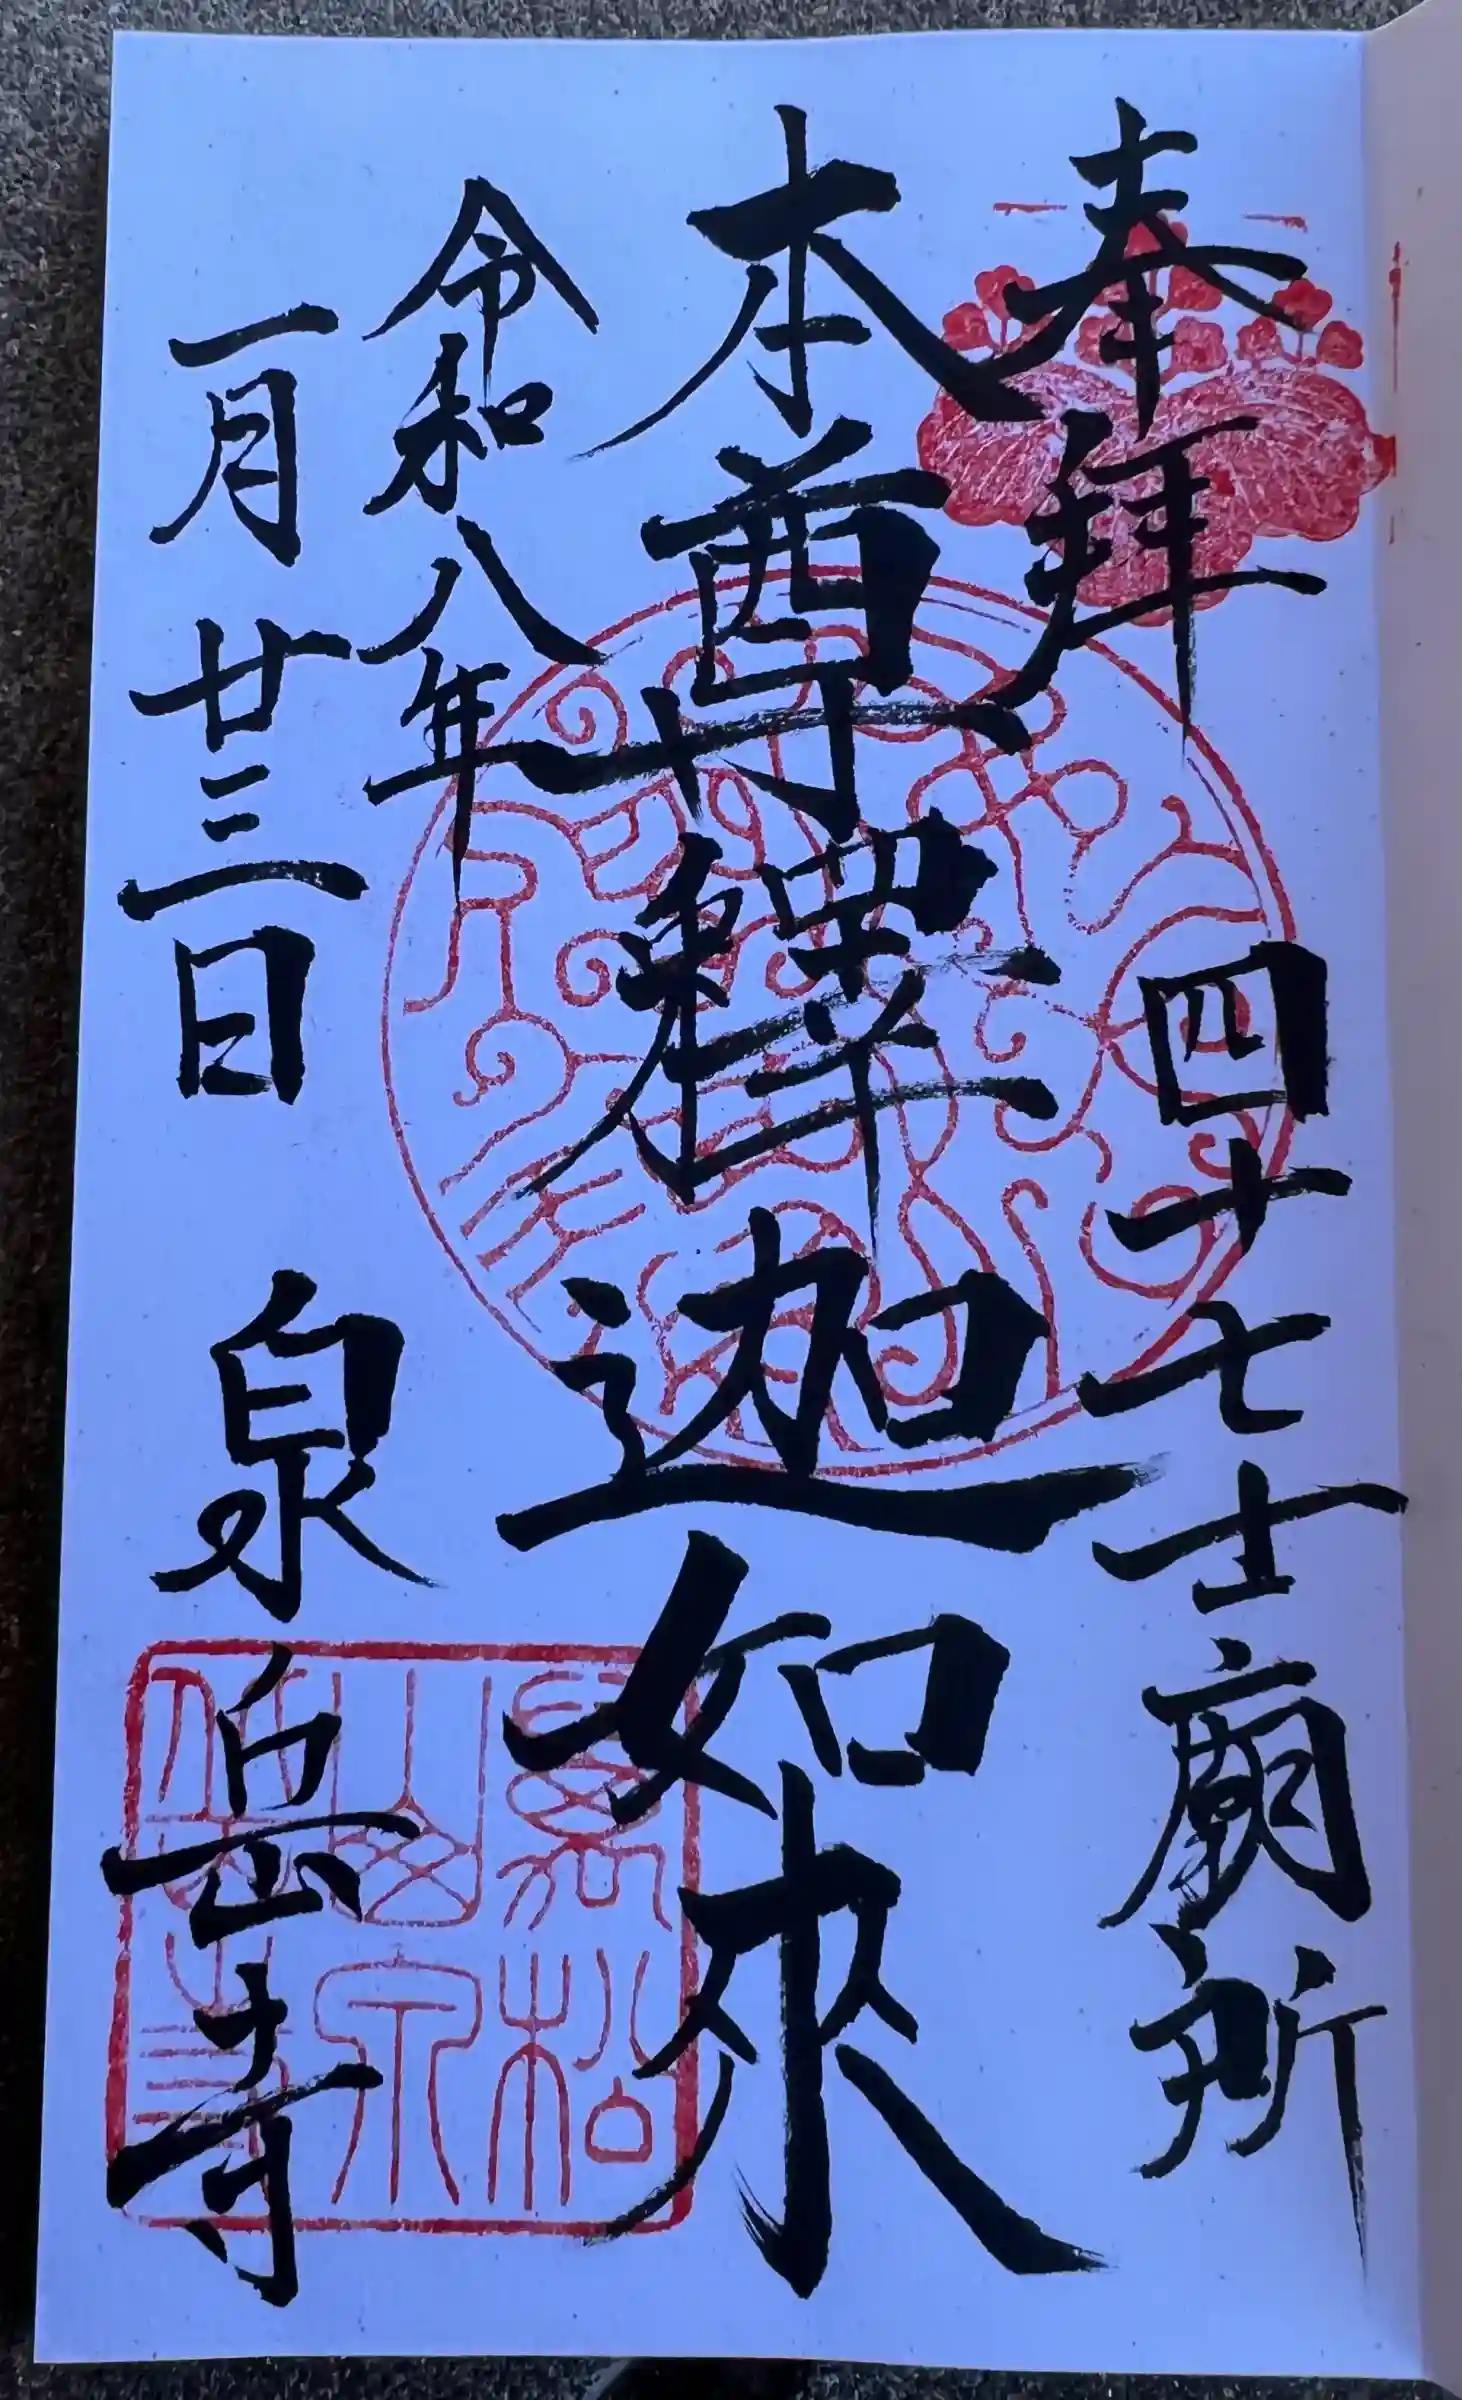 奉拝
四十七士廟所
本尊釋迦如來
令和八年
一月廿三日
泉岳寺